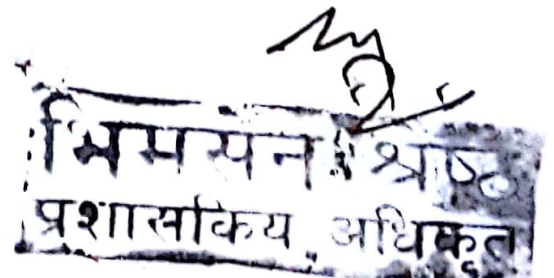 भिमसेन श्रेष्ठ
प्रशासकिय अधिकृत